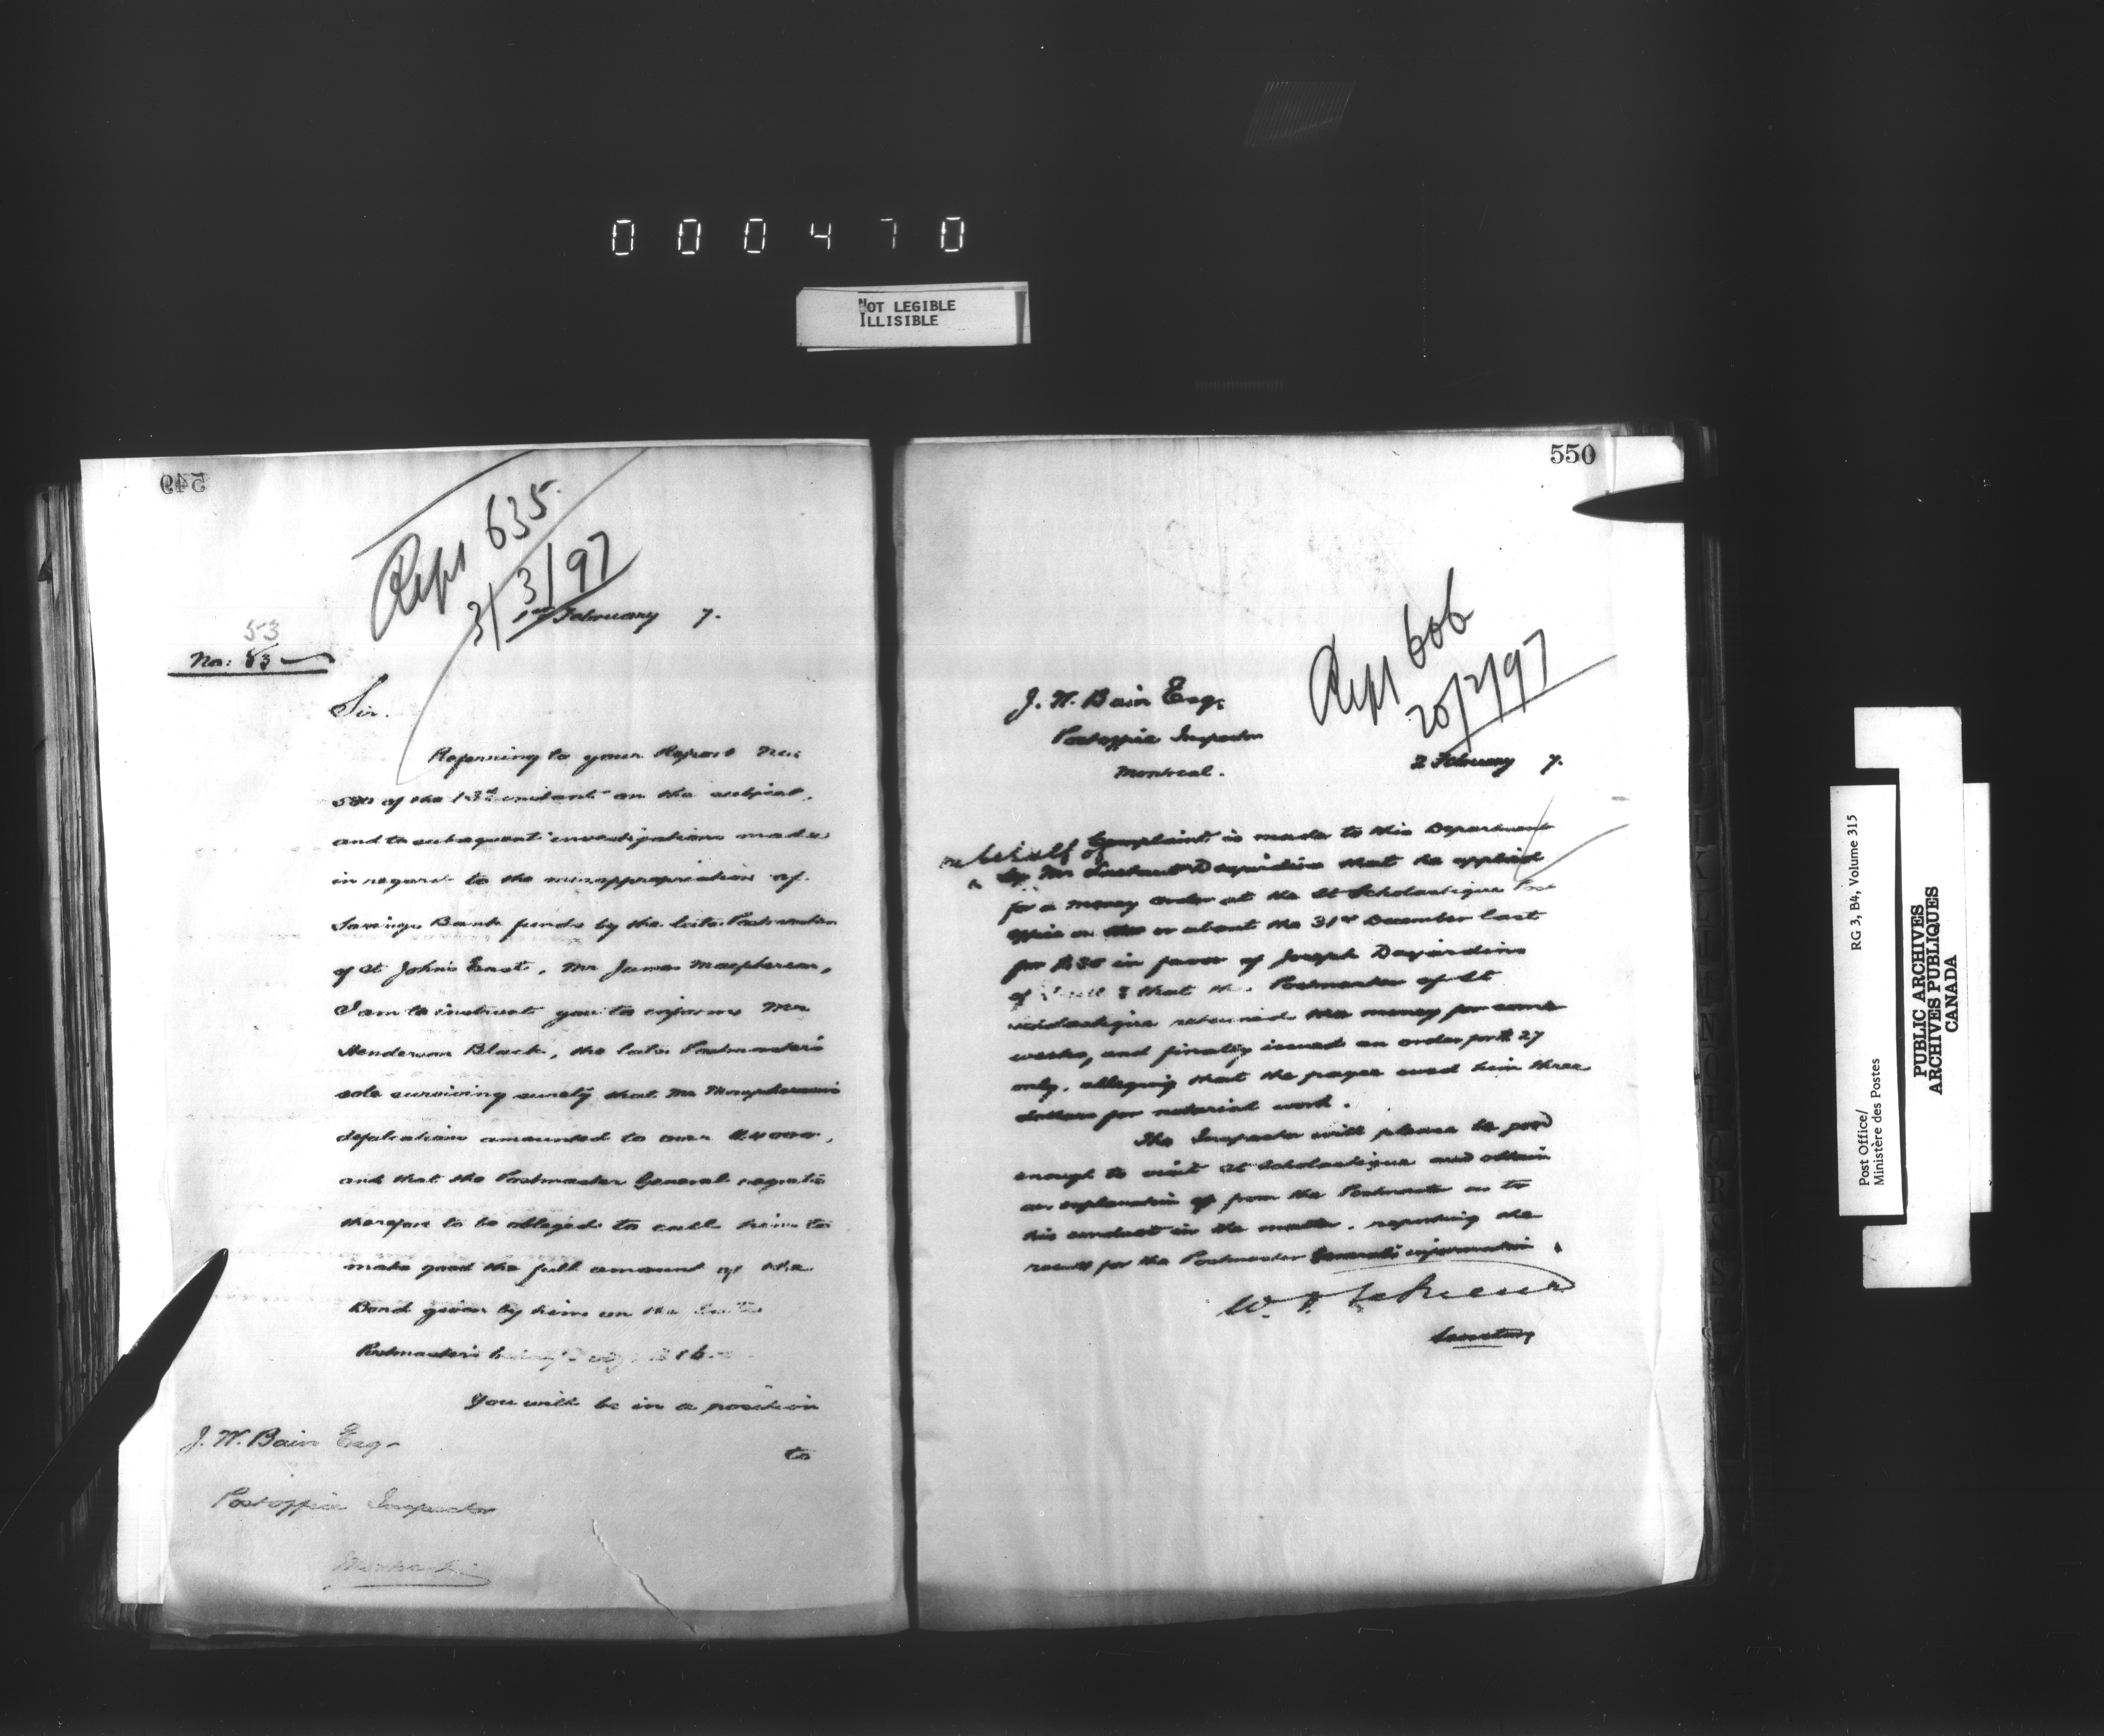 000470
NOT LEGIBLE
ILLISIBLE
549
Rept 635
3/3/97
1st February 7.
53
No: 83
Sir.
Referring to your Report No:
580 of the 13th instant on the subject,
and to subsequent investigations made
in regard to the misappropriation of
Savings Bank funds by the late Postmaster
of St Johns East, Mr James Macpherson,
I am to instruct you to inform Mr
Henderson Black, the late Postmaster's
sole surviving surety that Mr Macpherson's
defalcations amounted to over $4000,
and that the Postmaster General regrets
therefore to be obliged to call him to
make good the full amount of the
Bond given by him on the late
Postmaster's
You will be in a position
to
J. W. Bain Esq.
Postoffice Inspector
Montreal
550
Rept 606
20/2/97
J. W. Bain Esq.
Postoffice Inspector
Montreal.
2 February 7.
Complaint is made to this Department
on behalf of
by Mr Desjardins that he applied
for a money order at the St Scholastique Post
office on or about the 31st December last
for $30 in favor of Joseph Desjardins
of & that the Postmaster of St
Scholastique retained the money for some
weeks, and finally issued an order for $27
only, alleging that the payee owed him three
dollars for notarial work.
The Inspector will please be good
enough to visit St Scholastique and obtain
an explanation from the Postmaster as to
his conduct in the matter, reporting the
result for the Postmaster General's information.
W. D. LeSueur
Secretary
Post Office/
Ministère des Postes
RG 3, B4, Volume 315
PUBLIC ARCHIVES
ARCHIVES PUBLIQUES
CANADA